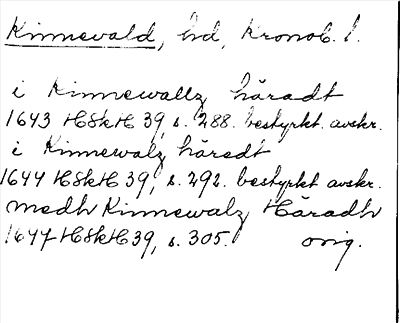 Kinnevald, hd, Kronob. l.
i Kinnewallz häradt
1643 HSkH 39, s. 288. bestyrkt avskr.
i Kinnewalz häredt
1644 HSkH 39, s. 292. bestyrkt avskr.
medh Kinnewalz Häradh
1644 HSkH 39, s. 305. orig.